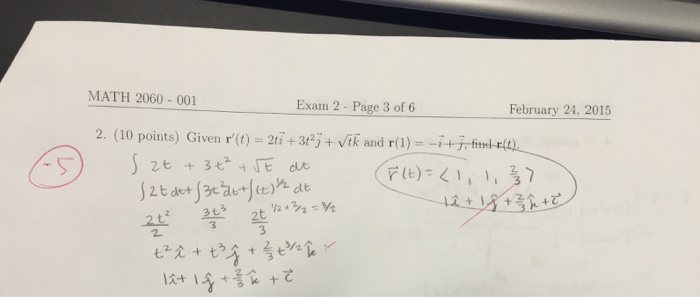 MATH 2060 - 001
Exam 2 - Page 3 of 6
February 24, 2015
2. (10 points) Given r′(t) = 2ti⃗ + 3t²j⃗ + √tk⃗ and r(1) = −i⃗ + j⃗, find r(t).
-5
∫ 2t + 3t² + √t dt
∫2t dt + ∫3t² dt + ∫(t)^1/2 dt
2t²/2 3t³/3 2t/3 1/2 + 2/2 = 3/2
t² î + t³ ĵ + 2/3 t^3/2 k̂
1î + 1ĵ + 2/3 k̂ + c⃗
r⃗(t) = <1, 1, 2/3>
1î + 1ĵ + 2/3 k̂ + c⃗